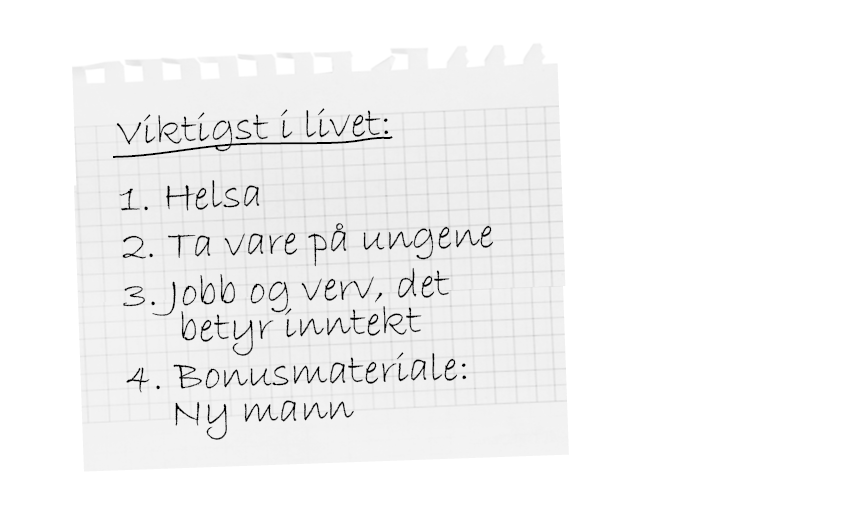 Viktigst i livet:
1. Helsa
2. Ta vare på ungene
3. Jobb og verv, det
betyr inntekt
4. Bonusmateriale:
Ny mann